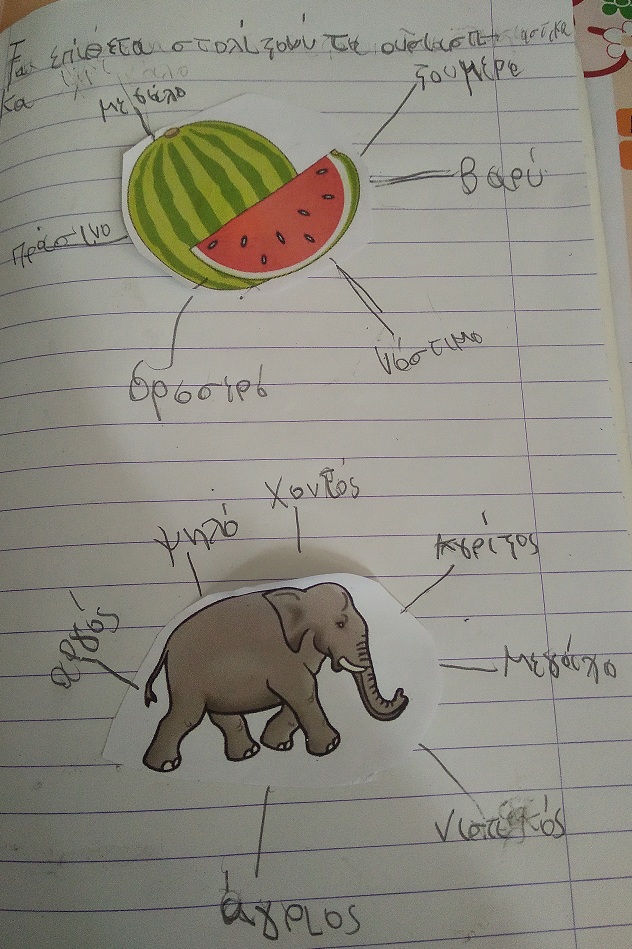 Τα επίθετα στολίζουν τα ουσιαστι
κα
μεγάλο
ζουμερο
βαρύ
πράσινο
νόστιμο
δροσιερό
χοντός
ψηλό
γκρίζος
αργός
μεγάλο
άγριος